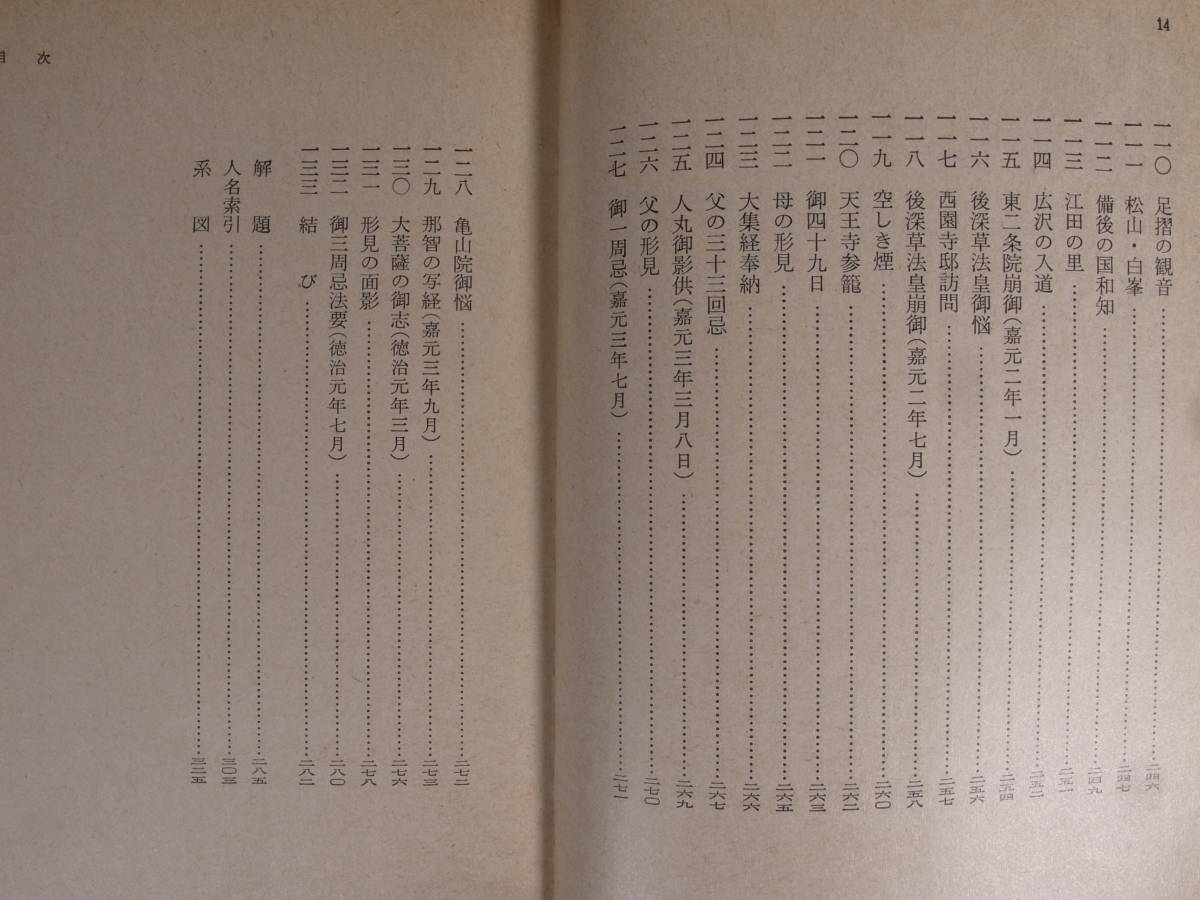 14
一一〇 足摺の観音……二四六
一一一 松山・白峯……二四七
一一二 備後の国和知……二四九
一一三 江田の里……二五一
一一四 広沢の入道……二五二
一一五 東二条院崩御(嘉元二年一月)……二五四
一一六 後深草法皇御悩……二五六
一一七 西園寺邸訪問……二五七
一一八 後深草法皇崩御(嘉元二年七月)……二五八
一一九 空しき煙……二六〇
一二〇 天王寺参籠……二六二
一二一 御四十九日……二六三
一二二 母の形見……二六五
一二三 大集経奉納……二六六
一二四 父の三十三回忌……二六七
一二五 人丸御影供(嘉元三年三月八日)……二六九
一二六 父の形見……二七〇
一二七 御一周忌(嘉元三年七月)……二七一
目次
一二八 亀山院御悩……二七二
一二九 那智の写経(嘉元三年九月)……二七三
一三〇 大菩薩の御志(徳治元年三月)……二七六
一三一 形見の面影……二七八
一三二 御三周忌法要(徳治元年七月)……二八〇
一三三 結び……二八二
解題……二八五
人名索引……三〇三
系図……三二五